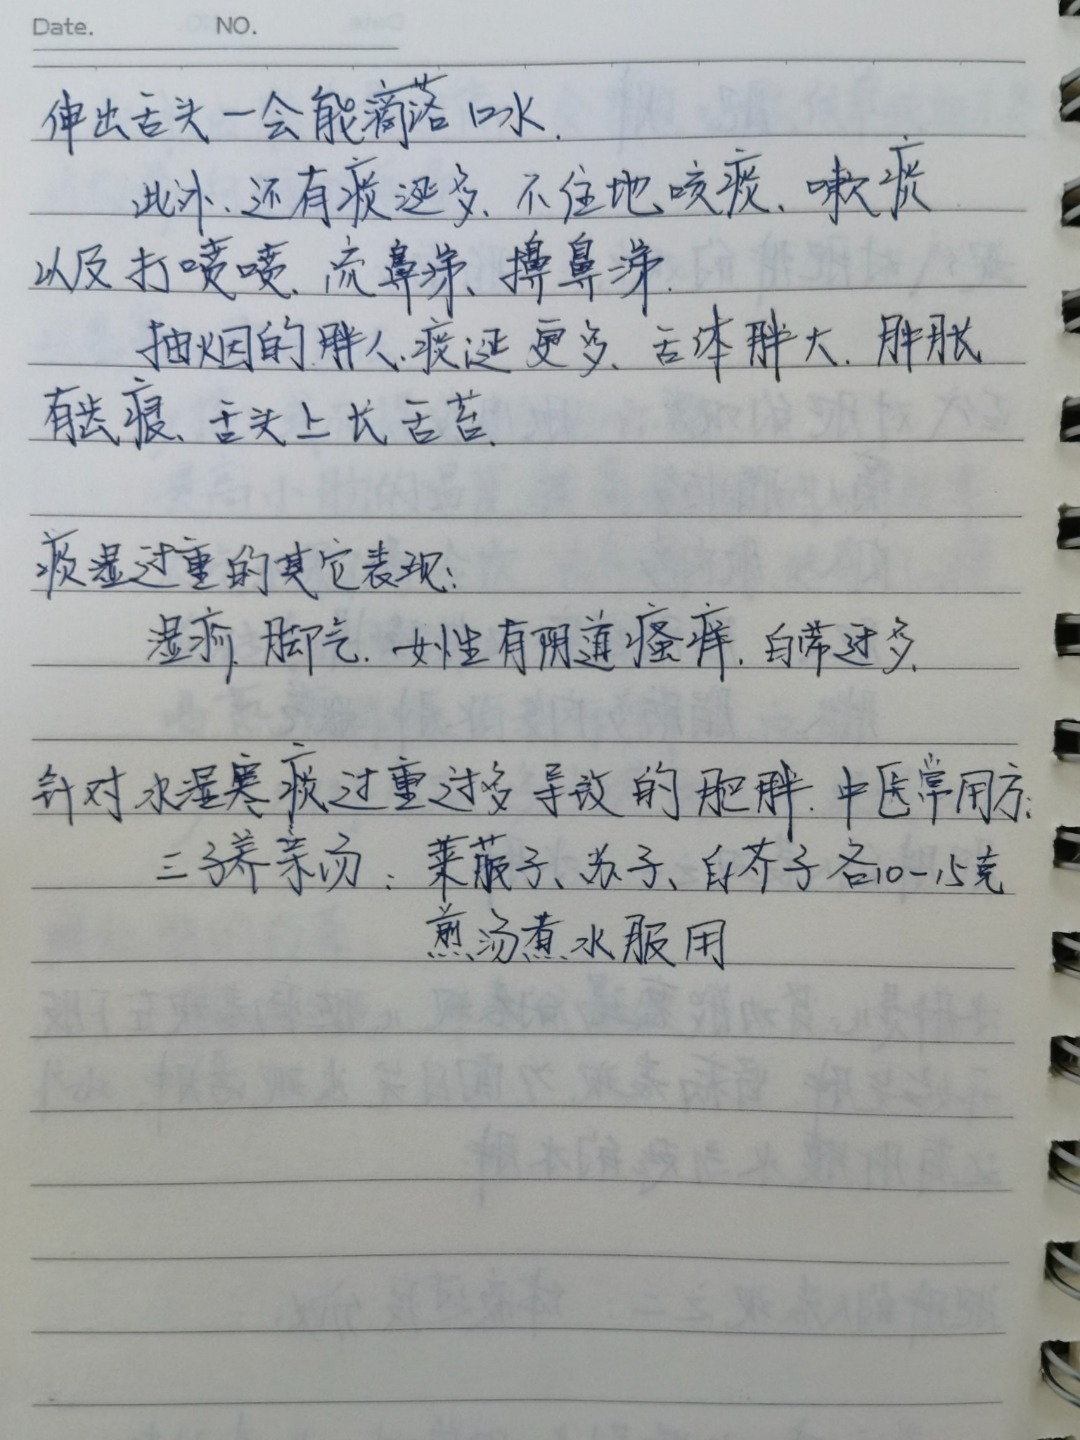 Date. NO.
伸出舌头一会能滴落口水.
此外、还有痰涎多、不住地咳痰、嗽痰
以及打喷喷、流鼻涕、擤鼻涕.
抽烟的胖人、痰涎更多、舌体胖大、胖胀
有齿痕、舌头上长舌苔.
痰湿过重的其它表现:
湿疹、脚气、女性有阴道瘙痒、白带过多.
针对水湿寒痰过重过多导致的肥胖、中医常用方:
三子养亲汤: 莱菔子、苏子、白芥子各10-15克
煎汤煮水服用